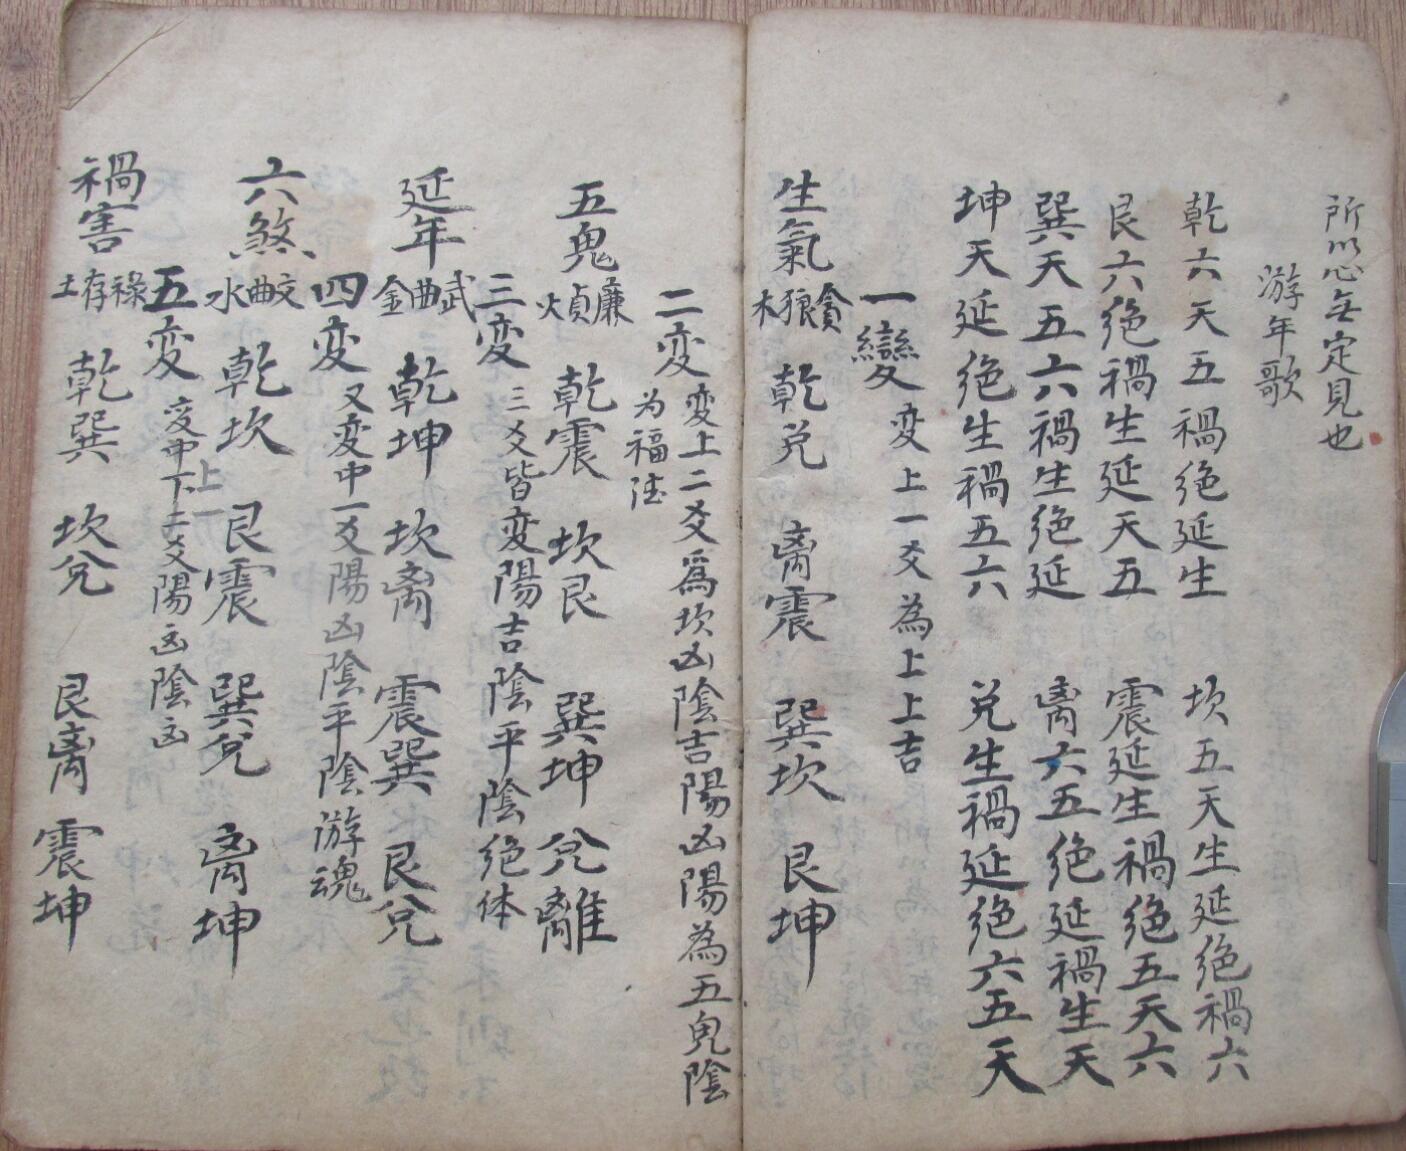 所以心无定見也
游年歌
乾六天五禍絶延生 坎五天生延絶禍六
艮六絶禍生延天五 震延生禍絶五天六
巽天五六禍生絶延 离六五绝延禍生天
坤天延绝生禍五六 兑生禍延绝六五天
一變 变上一爻為上上吉
生氣 貪狼木 乾兑 离震 巽坎 艮坤
二变 变上二爻爲坎凶陰吉陽凶陽為五鬼陰
为福
五鬼 廉貞火 乾震 坎艮 巽坤 兊離
三变 三爻皆变陽吉陰平陰绝体
延年 武曲金 乾坤 坎离 震巽 艮兊
四变 又变中一爻陽凶陰平陰游魂
六煞 文曲水 乾坎 艮震 巽兊 离坤
五变 变中下二爻陽凶陰凶
上一
禍害 禄存土 乾巽 坎兊 艮离 震坤